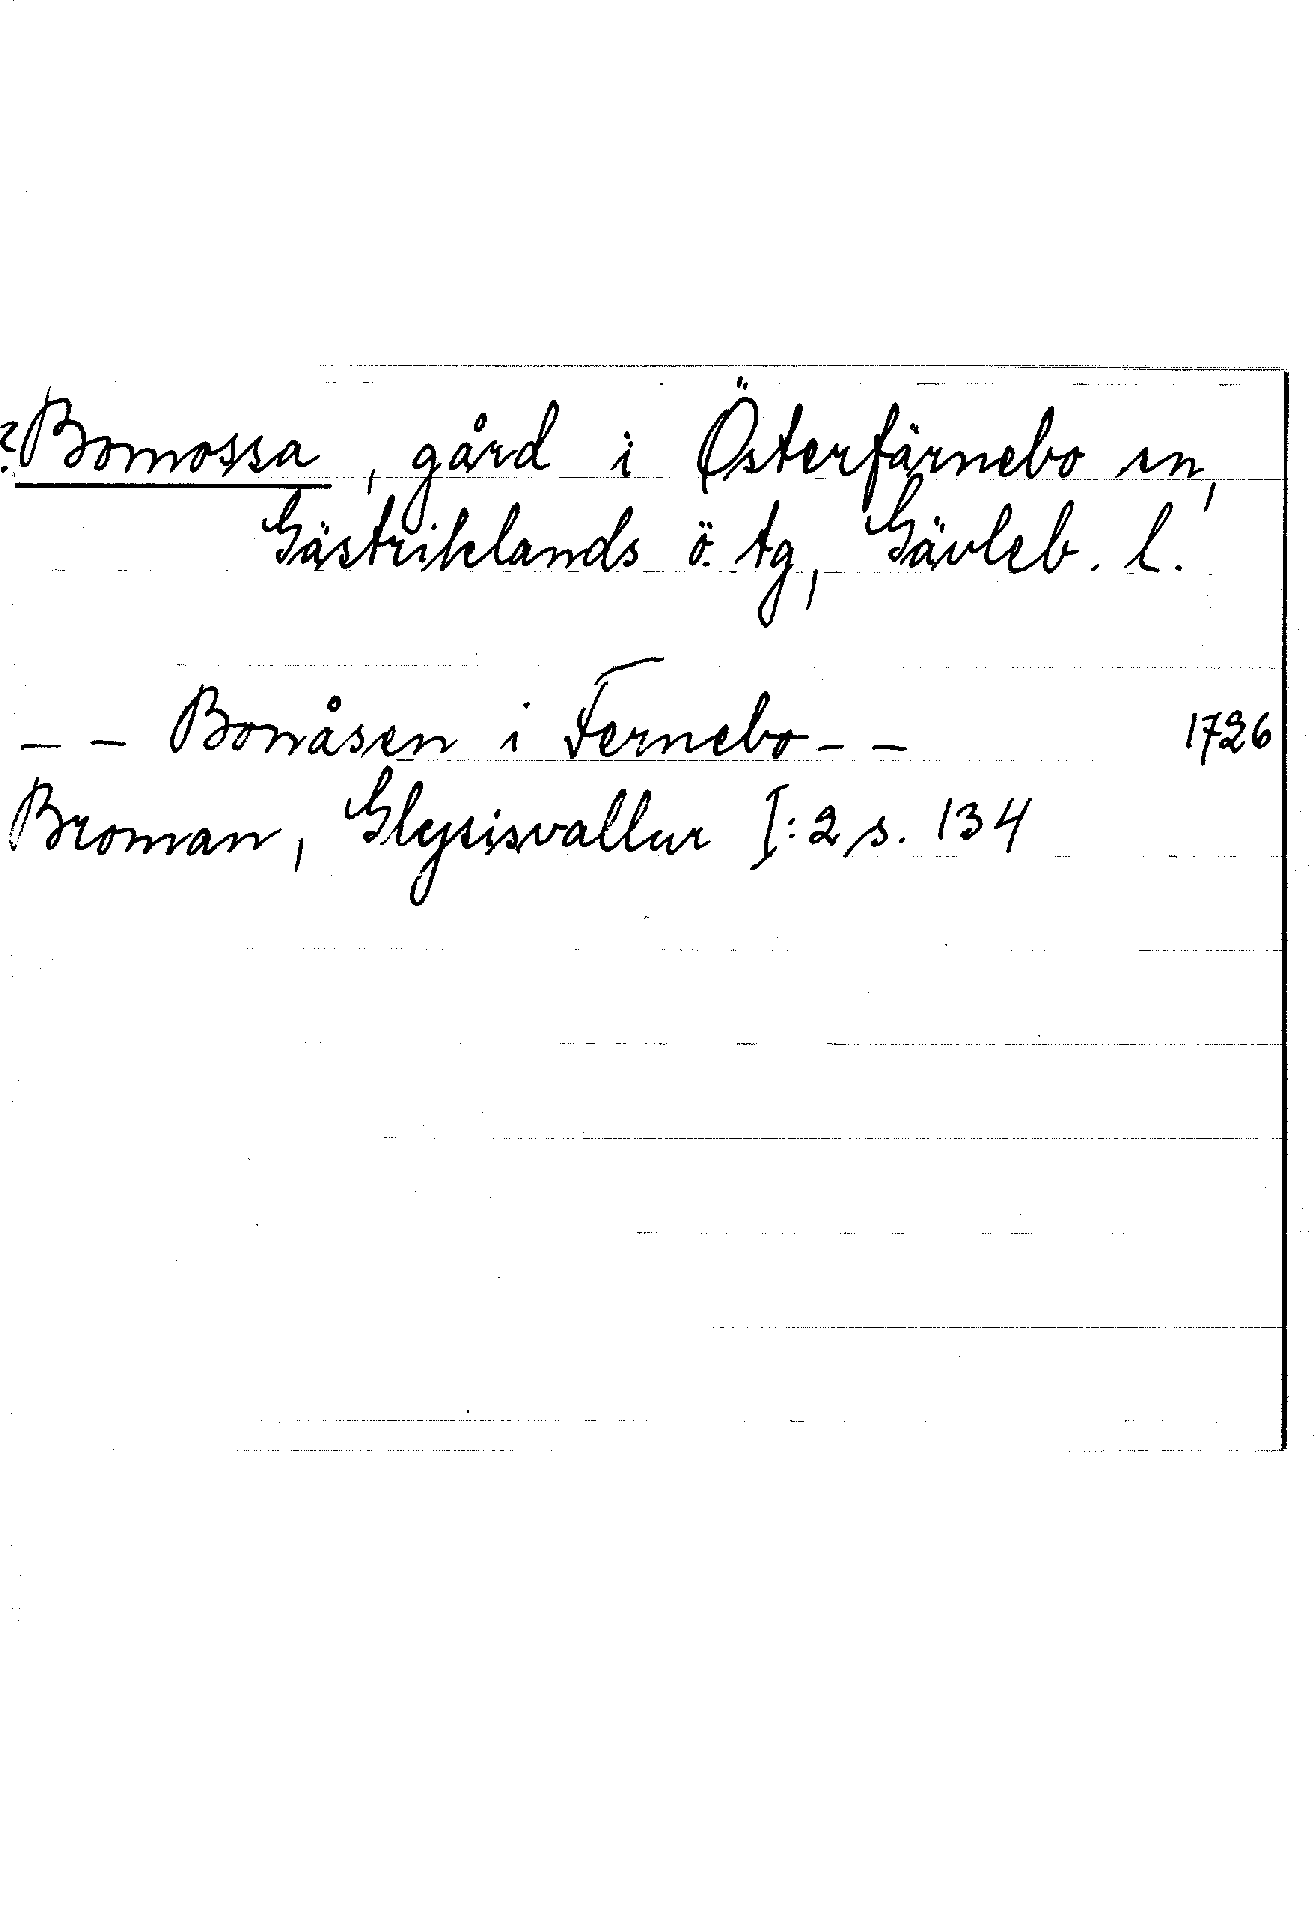 ? Bomossa, gård i Österfärnebo sn,
Gästriklands ö. tg, Gävleb. l.
– – Bonåsen i Fernebo – – 1726
Broman, Glysisvallur I:2 s. 134